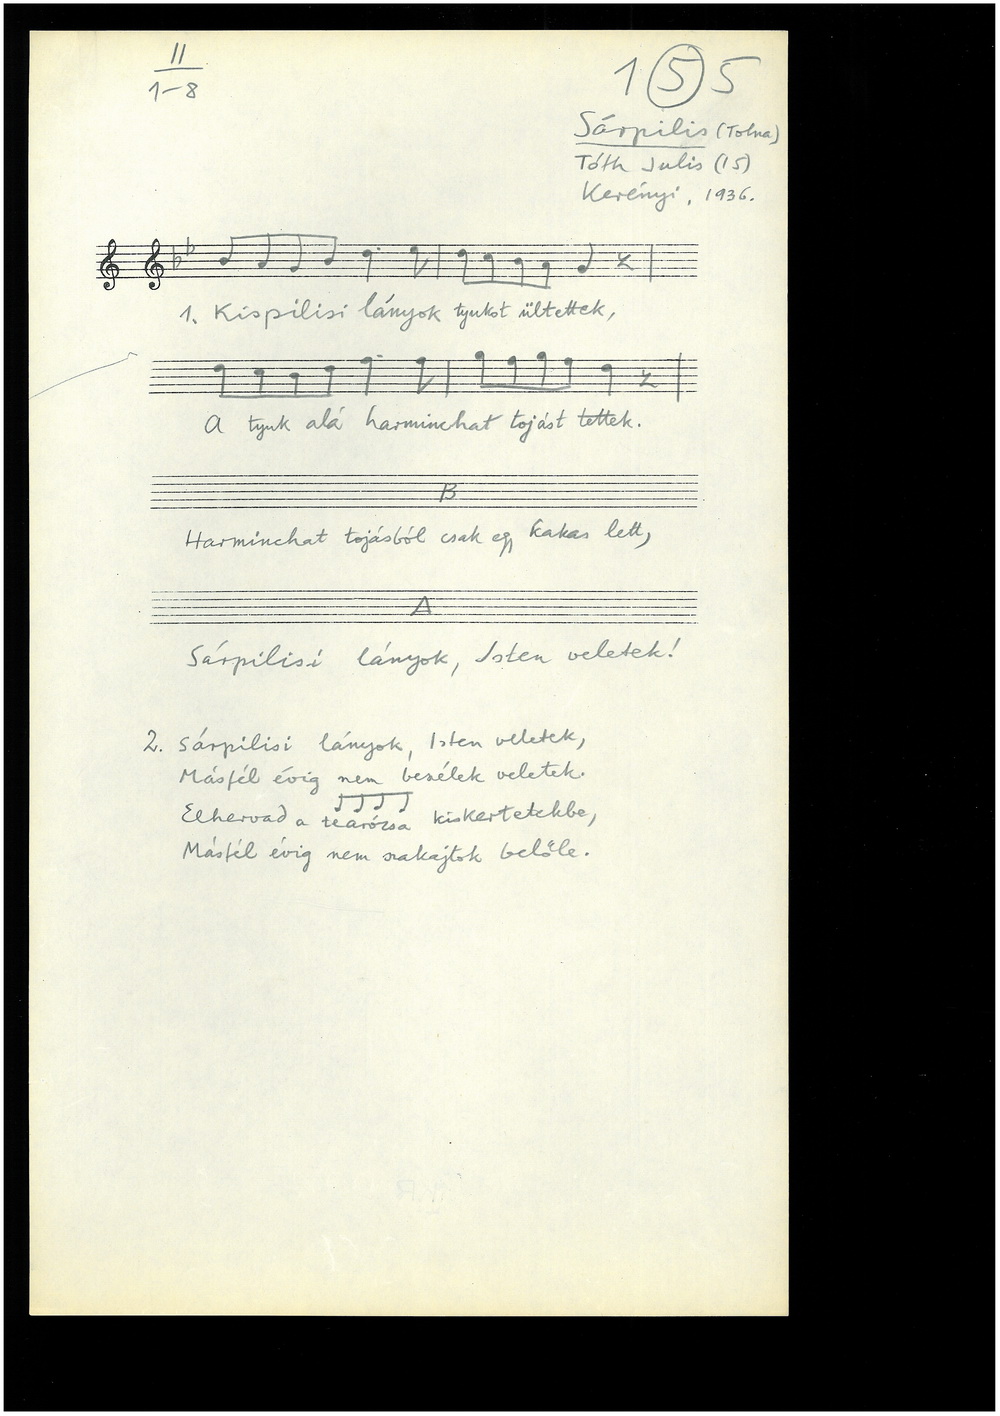 II
1-8
1 5 5
Sárpilis (Tolna)
Tóth Julis (15)
Kerényi, 1936.
1. Kispilisi lányok tyukot ültettek,
A tyuk alá harminchat tojást tettek.
B
Harminchat tojásból csak egy kakas lett,
A
Sárpilisi lányok, Isten veletek!
2. Sárpilisi lányok, Isten veletek,
Másfél évig nem beszélek veletek.
Elhervad a tearózsa kiskertetekbe,
Másfél évig nem szakajtok belőle.